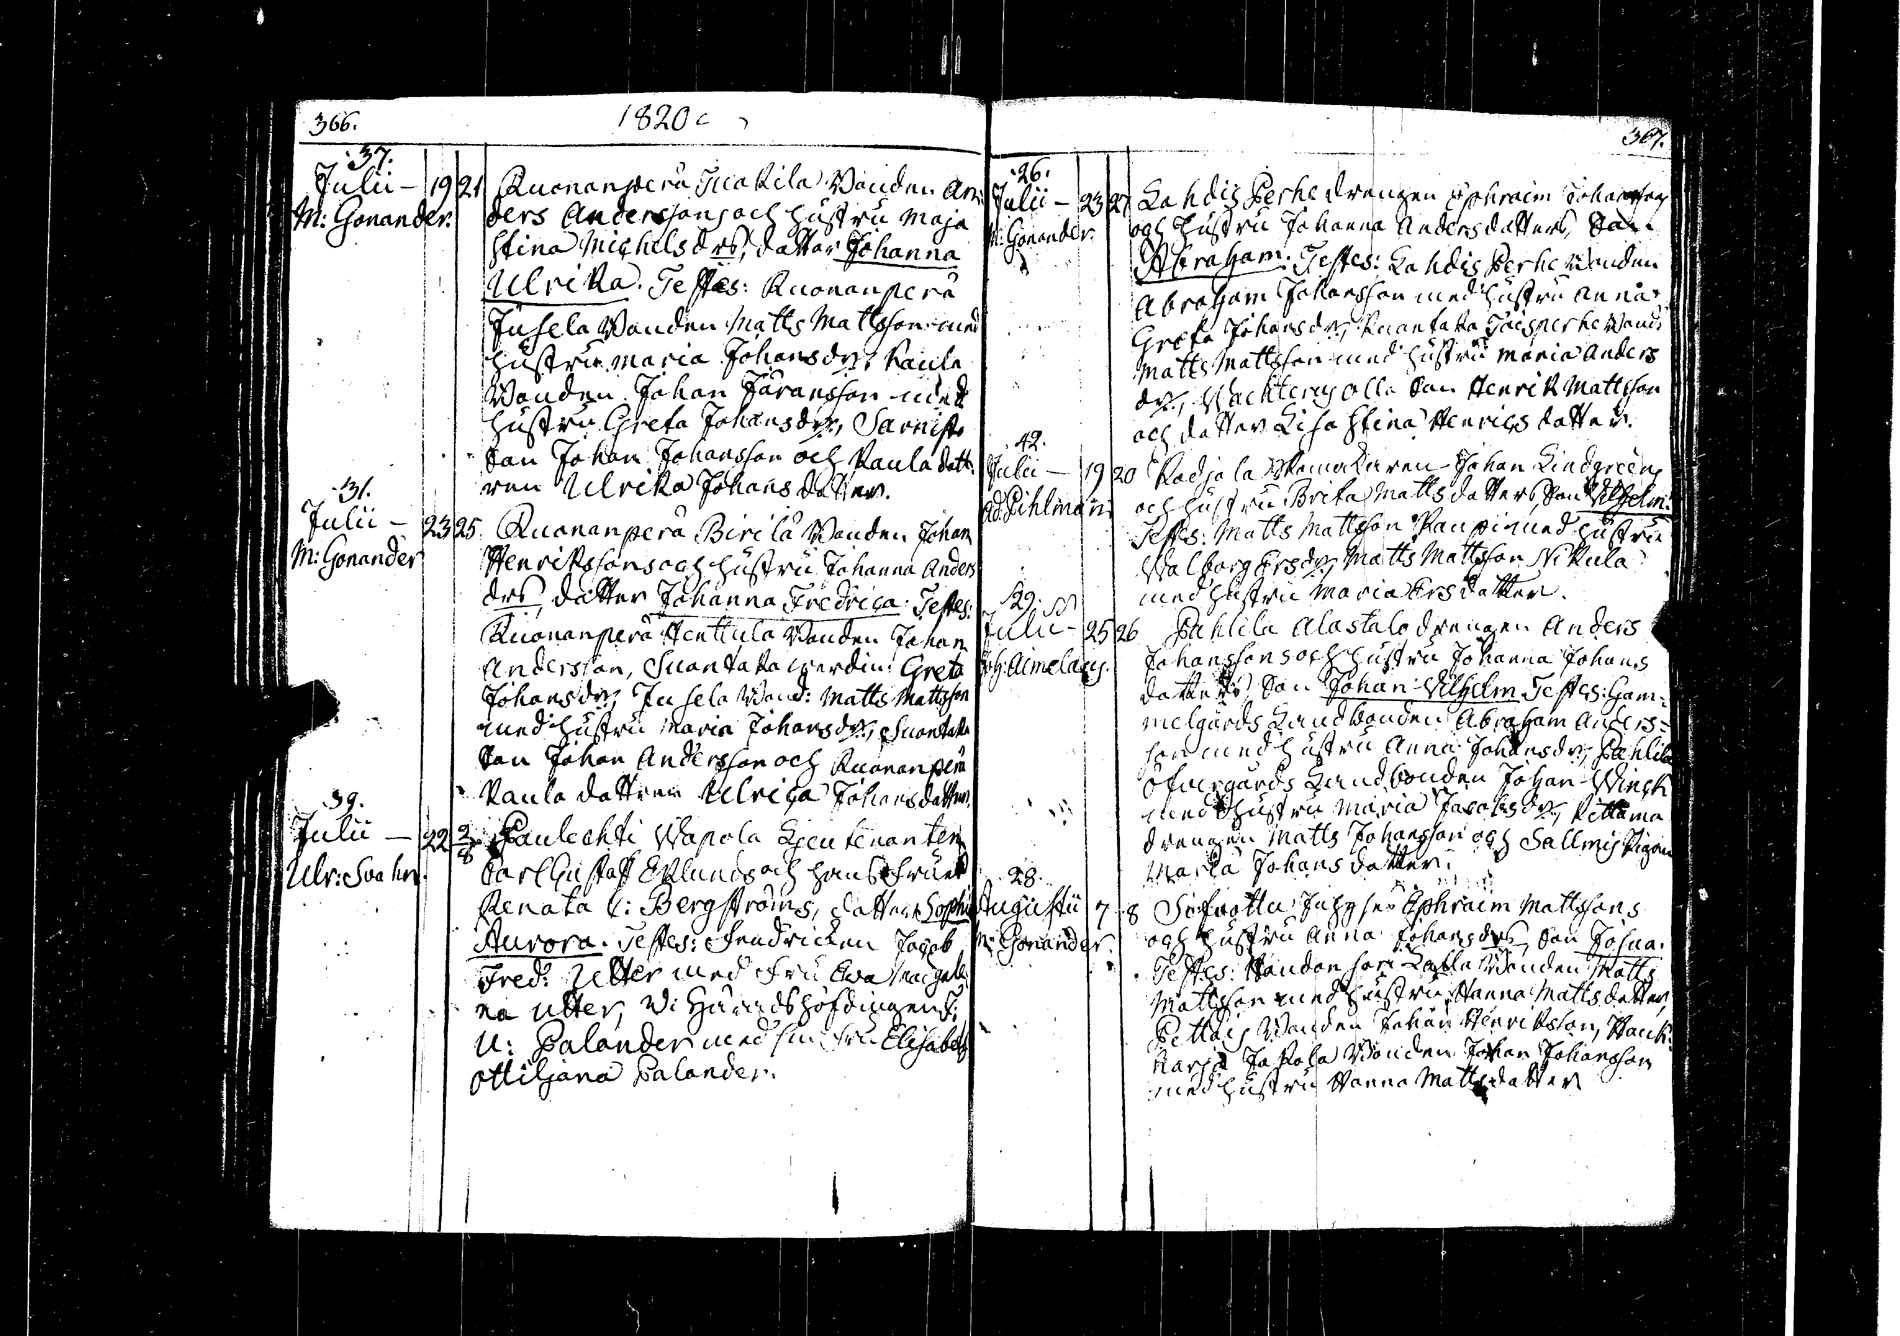 366.
1820
37.
Julii – 19 21 Kuonanperä Wonden An:
M: Gonander. ders Anderssons och hustru Maja
Stina Michelsdrs, dotter Johanna
Ulrika. Testes: Kuonanperä
Jusela Wonden Matts Mattsson med
hustru Maria Johansdr, Kaula
Wonden Johan Göransson med
hustru Greta Johansdr,
Son Johan Johansson och Kaula dott:
ren Ulrika Johans dotter.
31.
Julii – 23 25 Kuonanperä Birilä Wonden Johan
M: Gonander Henrikssons och hustru Johanna Anders
drs, dotter Johanna Fredrica. Testes:
Kuonanperä Henttula Wonden Johan
Andersson, Suontaka werdin: Greta
Johansdr, Jusela Wond: Matts Mattsson
med hustru Maria Johansdr, Suontaka
Son Johan Andersson och Kuonanperä
Kaula dottren Ulrica Johansdotter.
39.
Julii – 22 2/8 Paulechti Wapola Lieutenanten
Ulr: Svahn. Carl Gustaf Eklunds och hans Frues
Renata C: Bergströms, dotter Sophia
Aurora. Testes: Fendricken Jacob
Fred: Utter med Fru Ewa
na Utter, V: Häradshöfdingen F:
U: Palander med sin Fru Elisabeth
Ottiljana Palander.
367.
26.
Julii – 23 27 Lahdis Perhe drengen Ephraim Johanssons
M: Gonander. och hustru Johanna Andersdotters, Son
Abraham. Testes: Lahdis Perhe Wonden
Abraham Johansson med hustru Anna
Greta Johansdr, Wond:
Matts Mattsson med hustru Maria Anders
dr, Olla Son Henrik Mattsson
och dotter Lisa Stina Henrics dotter.
42.
Julii – 19 20 Kadjala Johan Lindgreens
Ad: Pihlman och hustru Brita Mattsdotters, Son Vilhelm.
Testes: Matts Mattsson Kauppi med hustru
Walborg Ersdr, Matts Mattsson Nikula
med hustru Maria Ersdotter.
29.
Julii – 25 26 Pahlila Alastalo drengen Anders
Joh: Aimelaeus. Johanssons och hustru Johanna Johans
dotters, Son Johan Vilhelm. Testes: Gam:
melgårds Landbonden Abraham Anders-
son med hustru Anna Johansdr, Pahlila
Öfvergårds Landbonden Johan Winck
med hustru Maria Jacobsdr,
drengen Matts Johansson och Sallmis Pigan
Maria Johans dotter.
28.
Augustii 7 8 Ephraim Mattssons
M: Gonander. och hustru Anna Johansdrs, Son Josua.
Testes: Wonden Matts
Mattsson med hustru Hanna Mattsdotter,
Wonden Johan Henriksson,
Wonden Johan Johansson
med hustru Hanna Mattsdotter